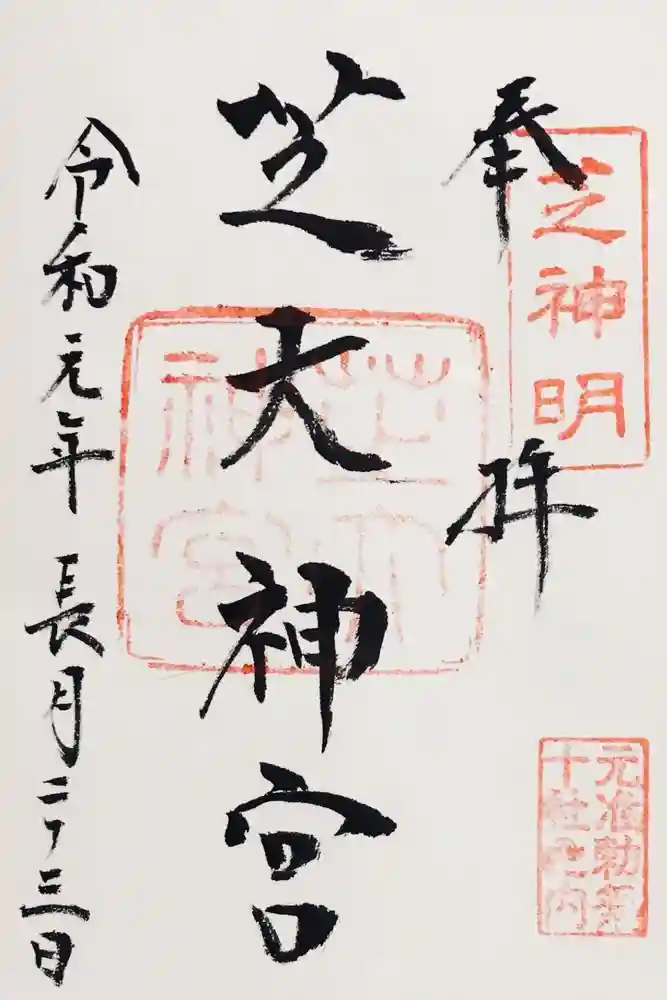 奉拝
芝神明
元准勅祭
十社之内
芝大神宮
芝大
神宮
令和元年長月二十三日